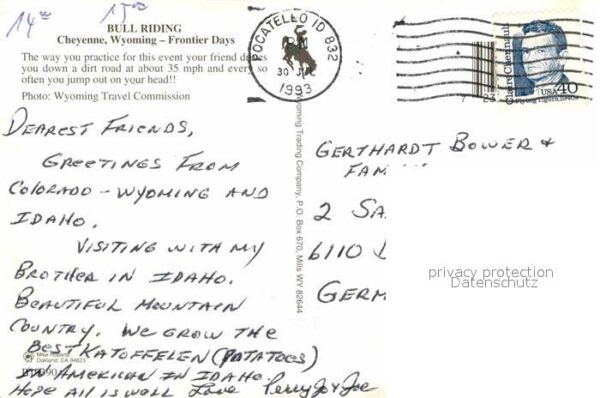 14.00 15.00
BULL RIDING
Cheyenne, Wyoming – Frontier Days
The way you practice for this event your friend drives
you down a dirt road at about 35 mph and every so
often you jump out on your head!!
Photo: Wyoming Travel Commission
POCATELLO ID 832
PM
30 JUL
1993
Claire Chennault
Flying Tigers, 1940s
USA 40
DEAREST FRIENDS,
GREETINGS FROM
COLORADO - WYOMING AND
IDAHO.
VISITING WITH MY
BROTHER IN IDAHO.
BEAUTIFUL MOUNTAIN
COUNTRY. WE GROW THE
BEST KATOFFELEN (POTATOES)
IN AMERICAN IN IDAHO.
HOPE ALL IS WELL LOVE Perry Jo & Joe
Mike Roberts
Oakland, CA 94623
Wyoming Trading Company, P.O. Box 670, Mills WY 82644
GERTHARDT BOWER +
FAM
2 SA
6110
GERM
privacy protection
Datenschutz